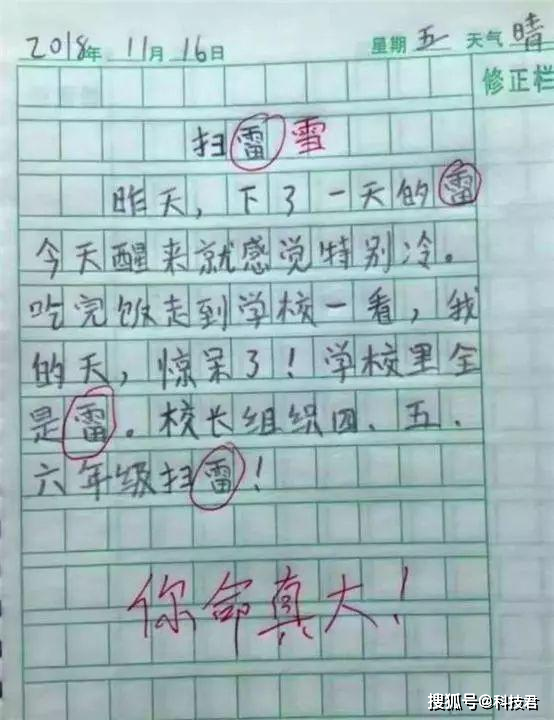 2018年 11月 16日 星期 五 天气 晴
修正栏
扫雷 雪
昨天，下了一天的雷
今天醒来就感觉特别冷。
吃完饭走到学校一看，我
的天，惊呆了！学校里全
是雷。校长组织四、五、
六年级扫雷！
你命真大！
搜狐号@科技君